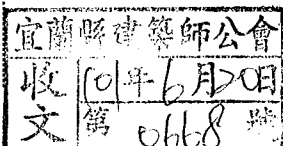 宜蘭縣建築師公會
收文
101年6月20日
第0668號